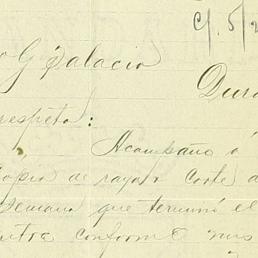 G Palacio
Dura
respeto:
Acompaño á
copia de rayas corte d
Semana que terminó el
conforme